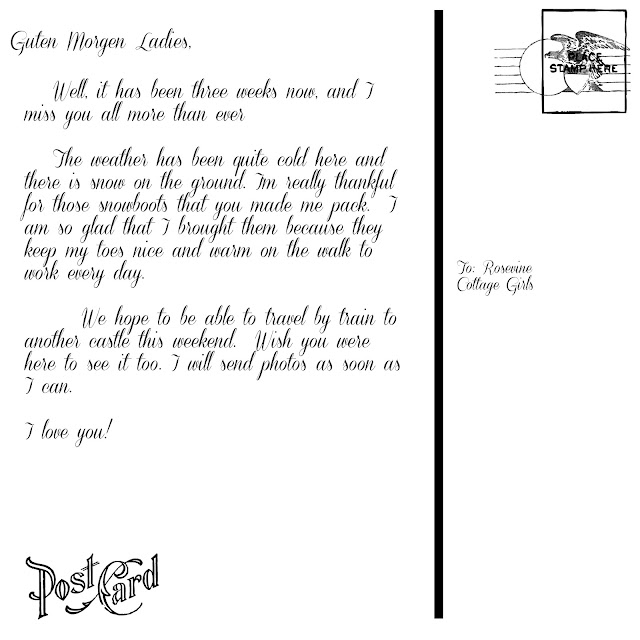 Guten Morgen Ladies,
Well, it has been three weeks now, and I
miss you all more than ever
The weather has been quite cold here and
there is snow on the ground. Im really thankful
for those snowboots that you made me pack. I
am so glad that I brought them because they
keep my toes nice and warm on the walk to
work every day.
We hope to be able to travel by train to
another castle this weekend. Wish you were
here to see it too. I will send photos as soon as
I can.
I love you!
Post Card
PLACE
STAMP HERE
To: Rosevine
Cottage Girls